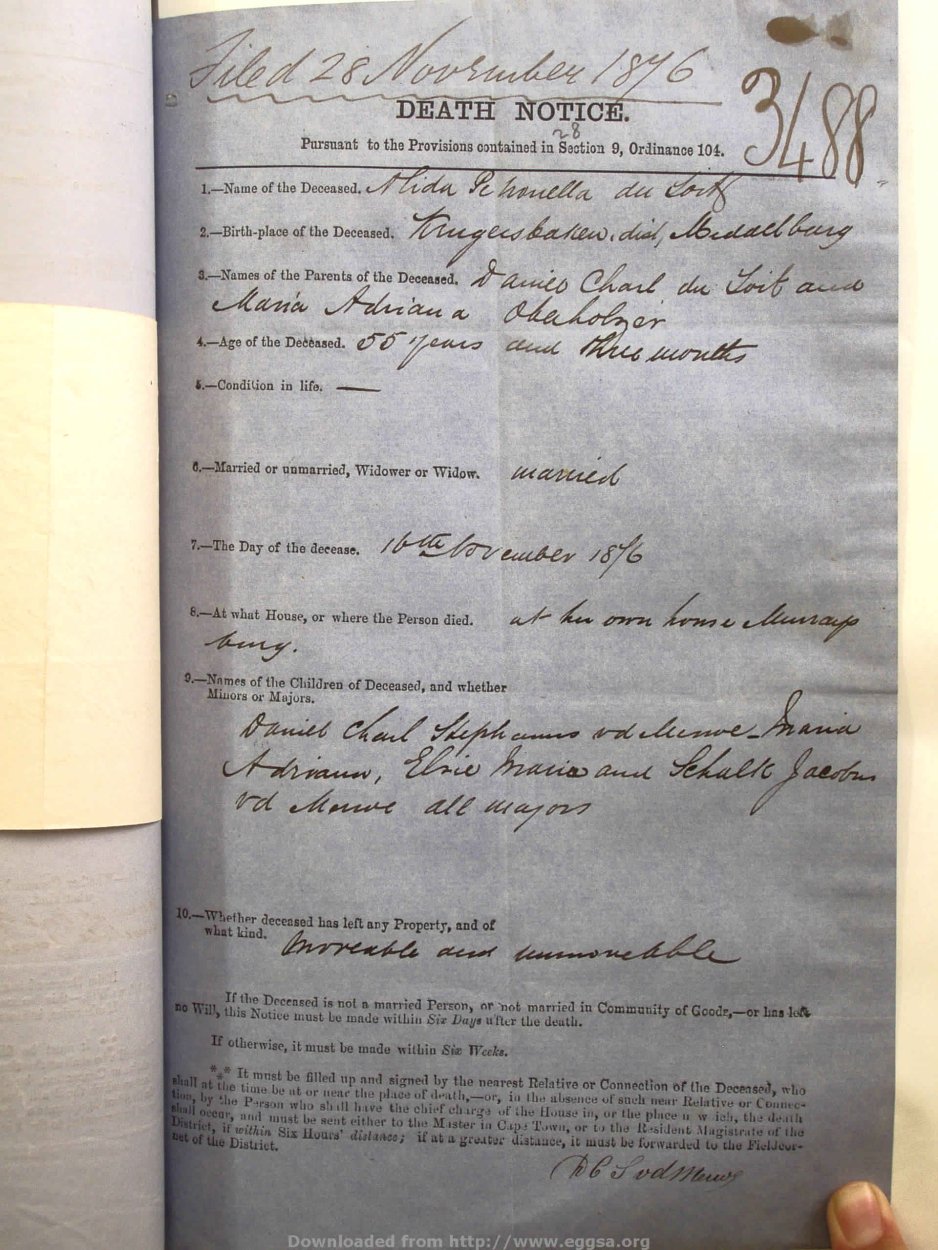 Filed 28 November 1876
3488
DEATH NOTICE.
28
Pursuant to the Provisions contained in Section 9, Ordinance 104.
1.—Name of the Deceased. Alida Petronella du Toit
2.—Birth-place of the Deceased. dist, Middelburg
3.—Names of the Parents of the Deceased. Daniel Charl du Toit and
Maria Adriana Oberholzer
4.—Age of the Deceased. 55 years and three months
5.—Condition in life. —
6.—Married or unmarried, Widower or Widow. married
7.—The Day of the decease. 16th November 1876
8.—At what House, or where the Person died. at her own house Murrays
burg.
9.—Names of the Children of Deceased, and whether
Minors or Majors.
Daniel Charl Stephanus vd Merwe - Maria
Adriana, Elsie Maria and Schalk Jacobus
vd Merwe all majors
10.—Whether deceased has left any Property, and of
what kind. Moveable and unmoveable
If the Deceased is not a married Person, or not married in Community of Goods,—or has left
no Will, this Notice must be made within Six Days after the death.
If otherwise, it must be made within Six Weeks.
*** It must be filled up and signed by the nearest Relative or Connection of the Deceased, who
shall at the time be at or near the place of death,—or, in the absence of such near Relative or Connec-
tion, by the Person who shall have the chief charge of the House in, or the place n w ich, the death
shall occur, and must be sent either to the Master in Cape Town, or to the Resident Magistrate of the
District, if within Six Hours' distance; if at a greater distance, it must be forwarded to the Fieldcor-
net of the District.
D C S vd Merwe
Downloaded from http://www.eggsa.org